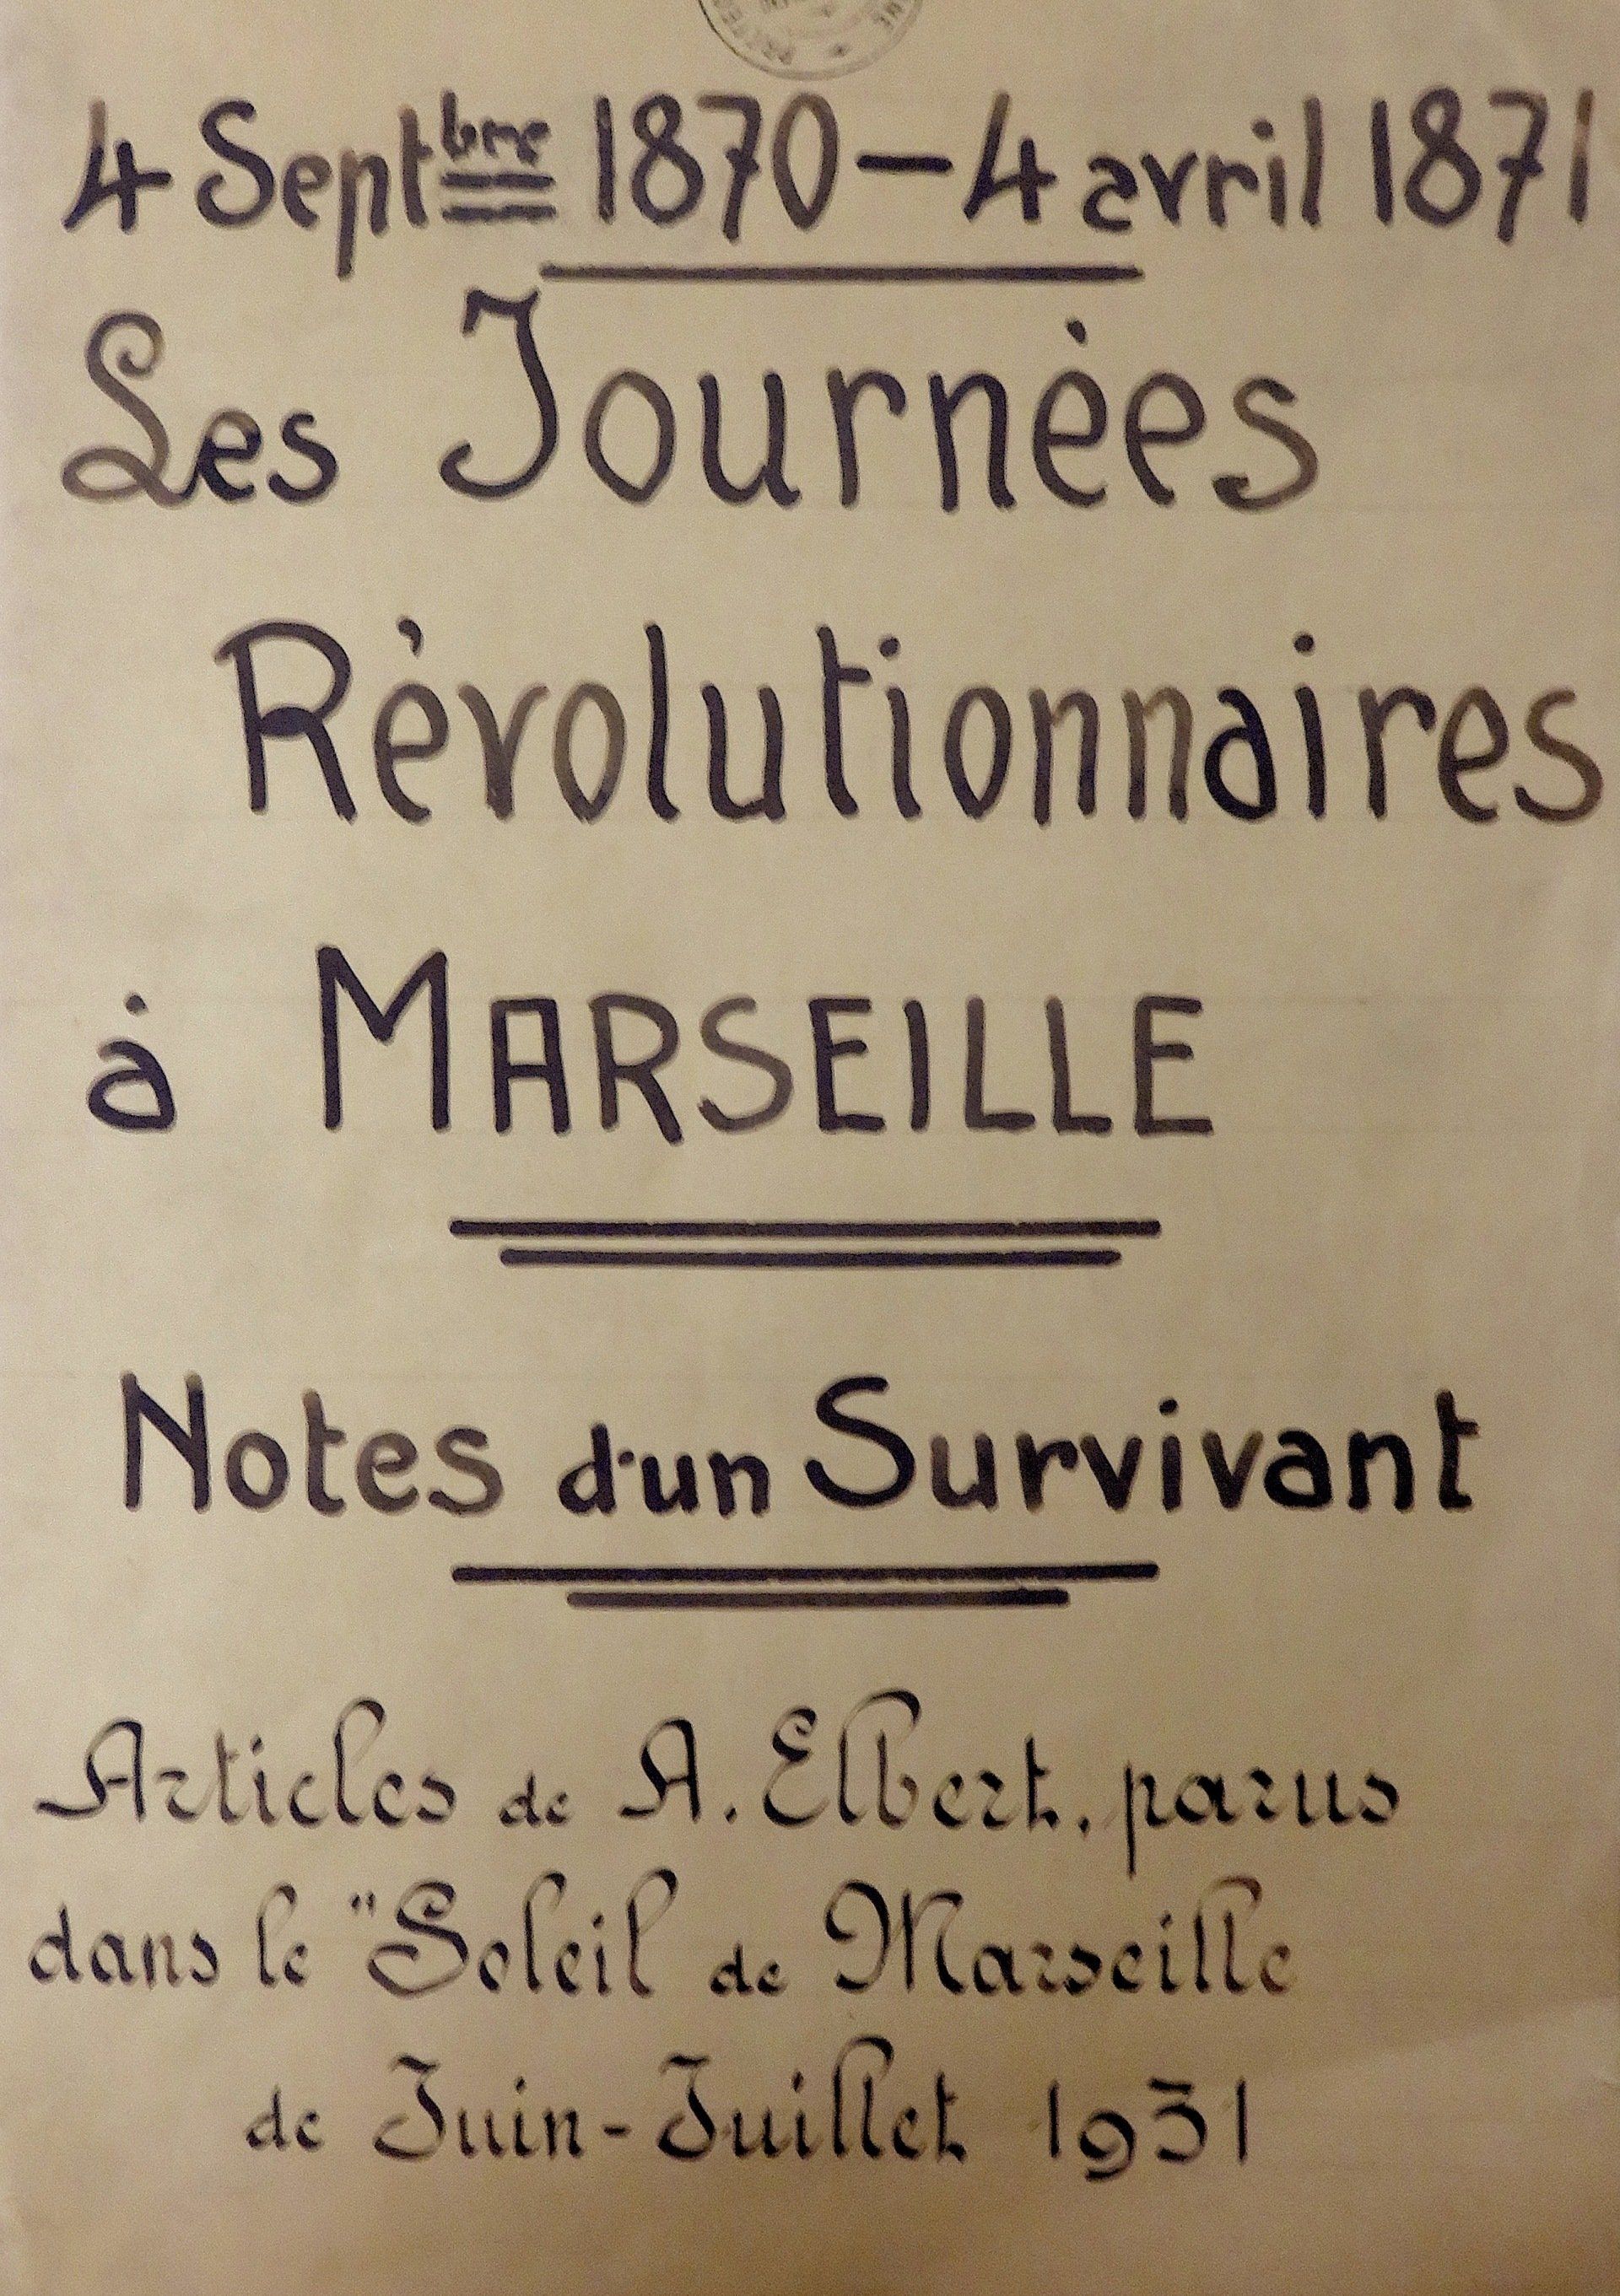 4 Septbre 1870 – 4 avril 1871
Les Journées
Révolutionnaires
à MARSEILLE
Notes d'un Survivant
Articles de A. Elbert, parus
dans le "Soleil de Marseille
de Juin-Juillet 1931